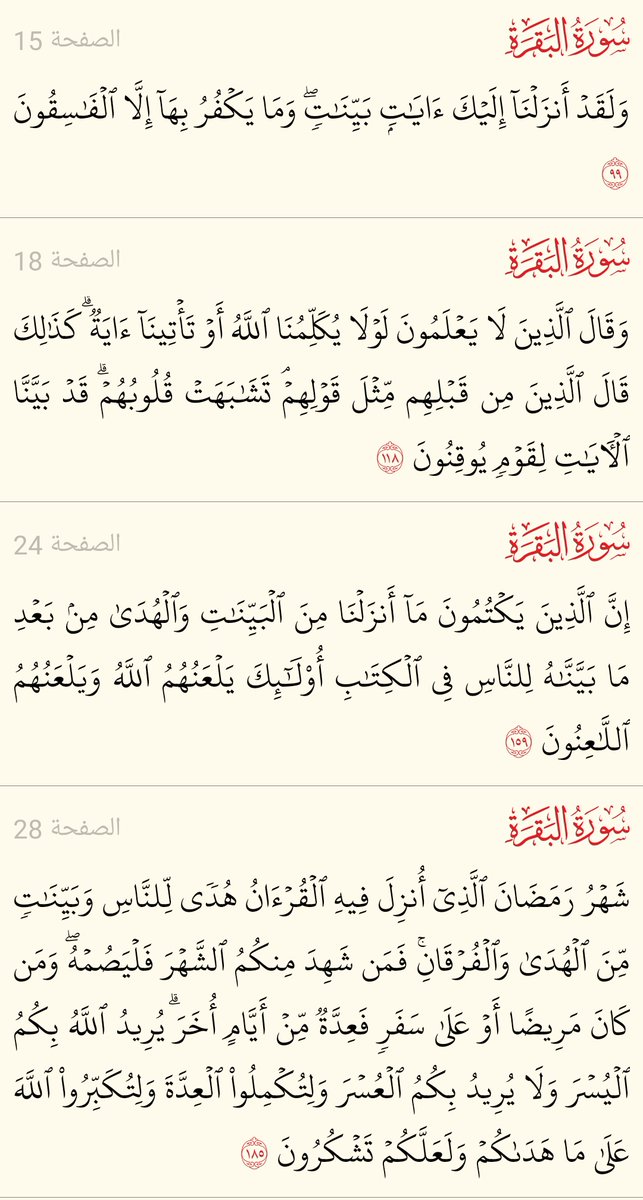 سُورَةُ البَقَرَةِ الصفحة 15
وَلَقَدۡ أَنزَلۡنَآ إِلَيۡكَ ءَايَٰتِۭ بَيِّنَٰتٖۖ وَمَا يَكۡفُرُ بِهَآ إِلَّا ٱلۡفَٰسِقُونَ
٩٩
سُورَةُ البَقَرَةِ الصفحة 18
وَقَالَ ٱلَّذِينَ لَا يَعۡلَمُونَ لَوۡلَا يُكَلِّمُنَا ٱللَّهُ أَوۡ تَأۡتِينَآ ءَايَةٞۗ كَذَٰلِكَ
قَالَ ٱلَّذِينَ مِن قَبۡلِهِم مِّثۡلَ قَوۡلِهِمۡۘ تَشَٰبَهَتۡ قُلُوبُهُمۡۗ قَدۡ بَيَّنَّا
ٱلۡأٓيَٰتِ لِقَوۡمٖ يُوقِنُونَ ١١٨
سُورَةُ البَقَرَةِ الصفحة 24
إِنَّ ٱلَّذِينَ يَكۡتُمُونَ مَآ أَنزَلۡنَا مِنَ ٱلۡبَيِّنَٰتِ وَٱلۡهُدَىٰ مِنۢ بَعۡدِ
مَا بَيَّنَّٰهُ لِلنَّاسِ فِي ٱلۡكِتَٰبِ أُوْلَٰٓئِكَ يَلۡعَنُهُمُ ٱللَّهُ وَيَلۡعَنُهُمُ
ٱللَّٰعِنُونَ ١٥٩
سُورَةُ البَقَرَةِ الصفحة 28
شَهۡرُ رَمَضَانَ ٱلَّذِيٓ أُنزِلَ فِيهِ ٱلۡقُرۡءَانُ هُدٗى لِّلنَّاسِ وَبَيِّنَٰتٖ
مِّنَ ٱلۡهُدَىٰ وَٱلۡفُرۡقَانِۚ فَمَن شَهِدَ مِنكُمُ ٱلشَّهۡرَ فَلۡيَصُمۡهُۖ وَمَن
كَانَ مَرِيضًا أَوۡ عَلَىٰ سَفَرٖ فَعِدَّةٞ مِّنۡ أَيَّامٍ أُخَرَۗ يُرِيدُ ٱللَّهُ بِكُمُ
ٱلۡيُسۡرَ وَلَا يُرِيدُ بِكُمُ ٱلۡعُسۡرَ وَلِتُكۡمِلُواْ ٱلۡعِدَّةَ وَلِتُكَبِّرُواْ ٱللَّهَ
عَلَىٰ مَا هَدَىٰكُمۡ وَلَعَلَّكُمۡ تَشۡكُرُونَ ١٨٥